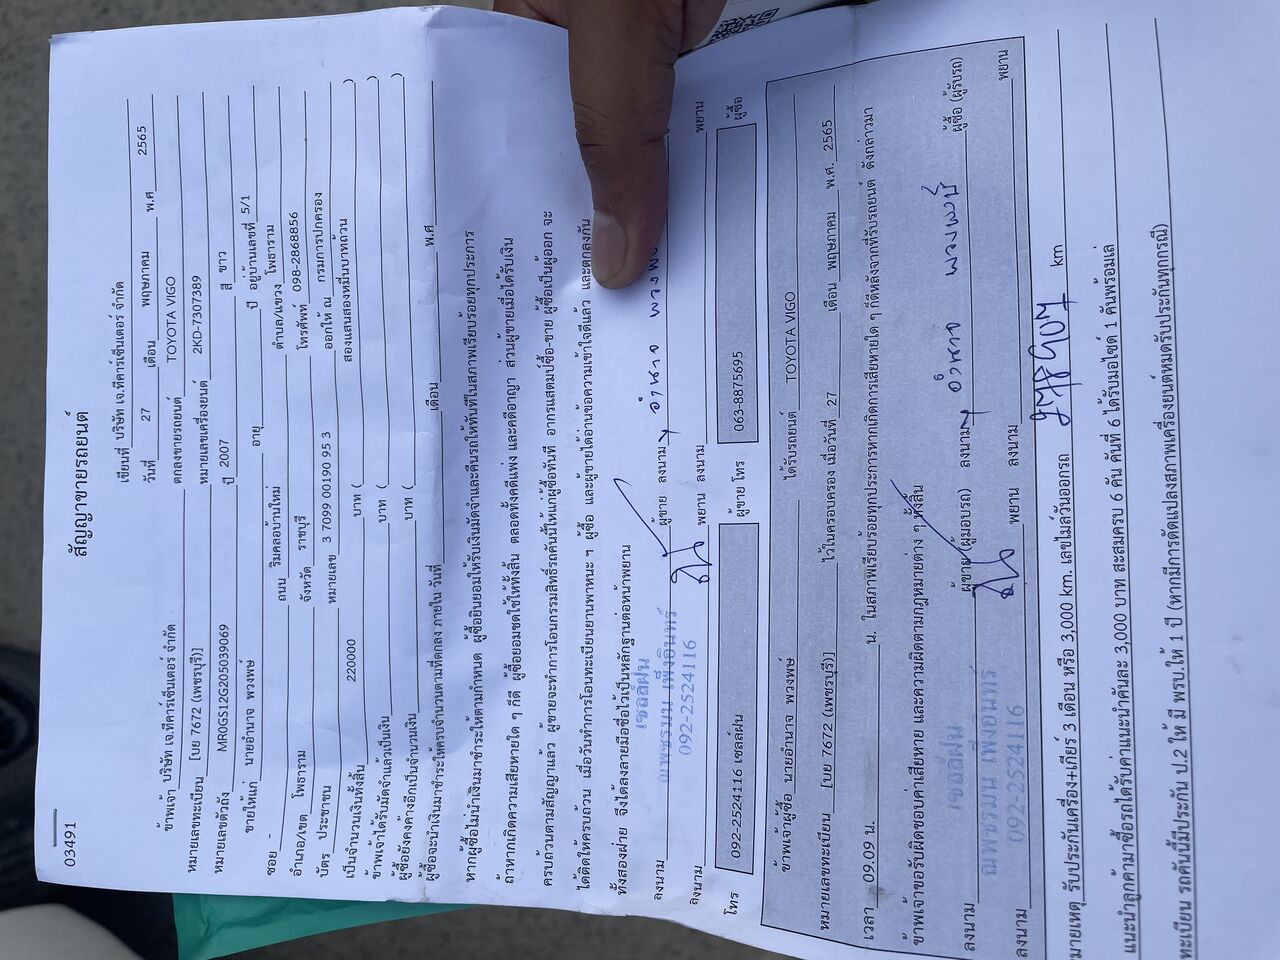 03491
สัญญาขายรถยนต์
เขียนที่ บริษัท เจ.ทีคาร์เซ็นเตอร์ จำกัด
วันที่ 27 เดือน พฤษภาคม พ.ศ 2565
ข้าพเจ้า บริษัท เจ.ทีคาร์เซ็นเตอร์ จำกัด ตกลงขายรถยนต์ TOYOTA VIGO
หมายเลขทะเบียน [บย 7672 (เพชรบุรี)] หมายเลขเครื่องยนต์ 2KD-7307389
หมายเลขตัวถัง MR0GS12G205039069 ปี 2007 สี ขาว
ขายให้แก่ นายอำนาจ พวงพษ์ อายุ ปี อยู่บ้านเลขที่ 5/1
ซอย - ถนน ริมคลอบ้านใหม่ ตำบล/แขวง โพธาราม
อำเภอ/เขต โพธาราม จังหวัด ราชบุรี โทรศัพท์ 098-2868856
บัตร ประชาชน หมายเลข 3 7099 00190 95 3 ออกให้ ณ กรมการปกครอง
เป็นจำนวนเงินทั้งสิ้น 220000 บาท ( สองแสนสองหมื่นบาทถ้วน )
ข้าพเจ้าได้รับมัดจำแล้วเป็นเงิน บาท ( )
ผู้ซื้อยังคงค้างอีกเป็นจำนวนเงิน บาท ( )
ผู้ซื้อจะนำเงินมาชำระให้ครบจำนวนตามที่ตกลง ภายใน วันที่ เดือน พ.ศ
หากผู้ซื้อไม่นำเงินมาชำระให้ตามกำหนด ผู้ซื้อยินยอมให้รับเงินมัดจำและคืนรถให้ทันทีในสภาพเรียบร้อยทุกประการ
ถ้าหากเกิดความเสียหายใด ๆ ก็ดี ผู้ซื้อยอมชดใช้ให้ทั้งสิ้น ตลอดทั้งคดีแพ่ง และคดีอาญา ส่วนผู้ขายเมื่อได้รับเงิน
ครบถ้วนตามสัญญาแล้ว ผู้ขายจะทำการโอนกรรมสิทธิ์รถคันนี้ให้แก่ผู้ซื้อทันที อากรแสตมป์ซื้อ-ขาย ผู้ซื้อเป็นผู้ออก จะ
ได้ติดให้ครบถ้วน เมื่อวันทำการโอนทะเบียนยานพาหนะ ๆ ผู้ซื้อ และผู้ขายได้อ่านข้อความเข้าใจดีแล้ว และตกลงกัน
ทั้งสองฝ่าย จึงได้ลงลายมือชื่อไว้เป็นหลักฐานต่อหน้าพยาน
เซลล์ฝน
ณพชรมน เพ็งอินทร์
092-2524116
ลงนาม ผู้ขาย ลงนาม อำนาจ
ลงนาม พยาน ลงนาม พยาน
โทร 092-2524116 เซลล์ฝน ผู้ขาย โทร 063-8875695 ผู้ซื้อ
ข้าพเจ้าผู้ซื้อ นายอำนาจ พวงพษ์ ได้รับรถยนต์ TOYOTA VIGO
หมายเลขทะเบียน [บย 7672 (เพชรบุรี)] ไว้ในครอบครอง เมื่อวันที่ 27 เดือน พฤษภาคม พ.ศ. 2565
เวลา 09.09 น. น. ในสภาพเรียบร้อยทุกประการหากเกิดการเสียหายใด ๆ ก็ดีหลังจากที่รับรถยนต์ ดังกล่าวมา
ข้าพเจ้าขอรับผิดชอบค่าเสียหาย และความผิดตามกฎหมายต่าง ๆ ทั้งสิ้น
เซลล์ฝน
ณพชรมน เพ็งอินทร์
092-2524116
ลงนาม ผู้ขาย (ผู้มอบรถ) ลงนาม อำนาจ ผู้ซื้อ (ผู้รับรถ)
ลงนาม พยาน ลงนาม พยาน
มายเหตุ รับประกันเครื่อง+เกียร์ 3 เดือน หรือ 3,000 km. เลขไมล์วันออกรถ km
แนะนำลูกค้ามาซื้อรถได้รับค่าแนะนำคันละ 3,000 บาท สะสมครบ 6 คัน คันที่ 6 ได้รับมอไซด์ 1 คันพร้อมเล่
ทะเบียน รถคันนี้มีประกัน ป.2 ให้ มี พรบ.ให้ 1 ปี (หากมีการดัดแปลงสภาพเครื่องยนต์หมดรับประกันทุกกรณี)